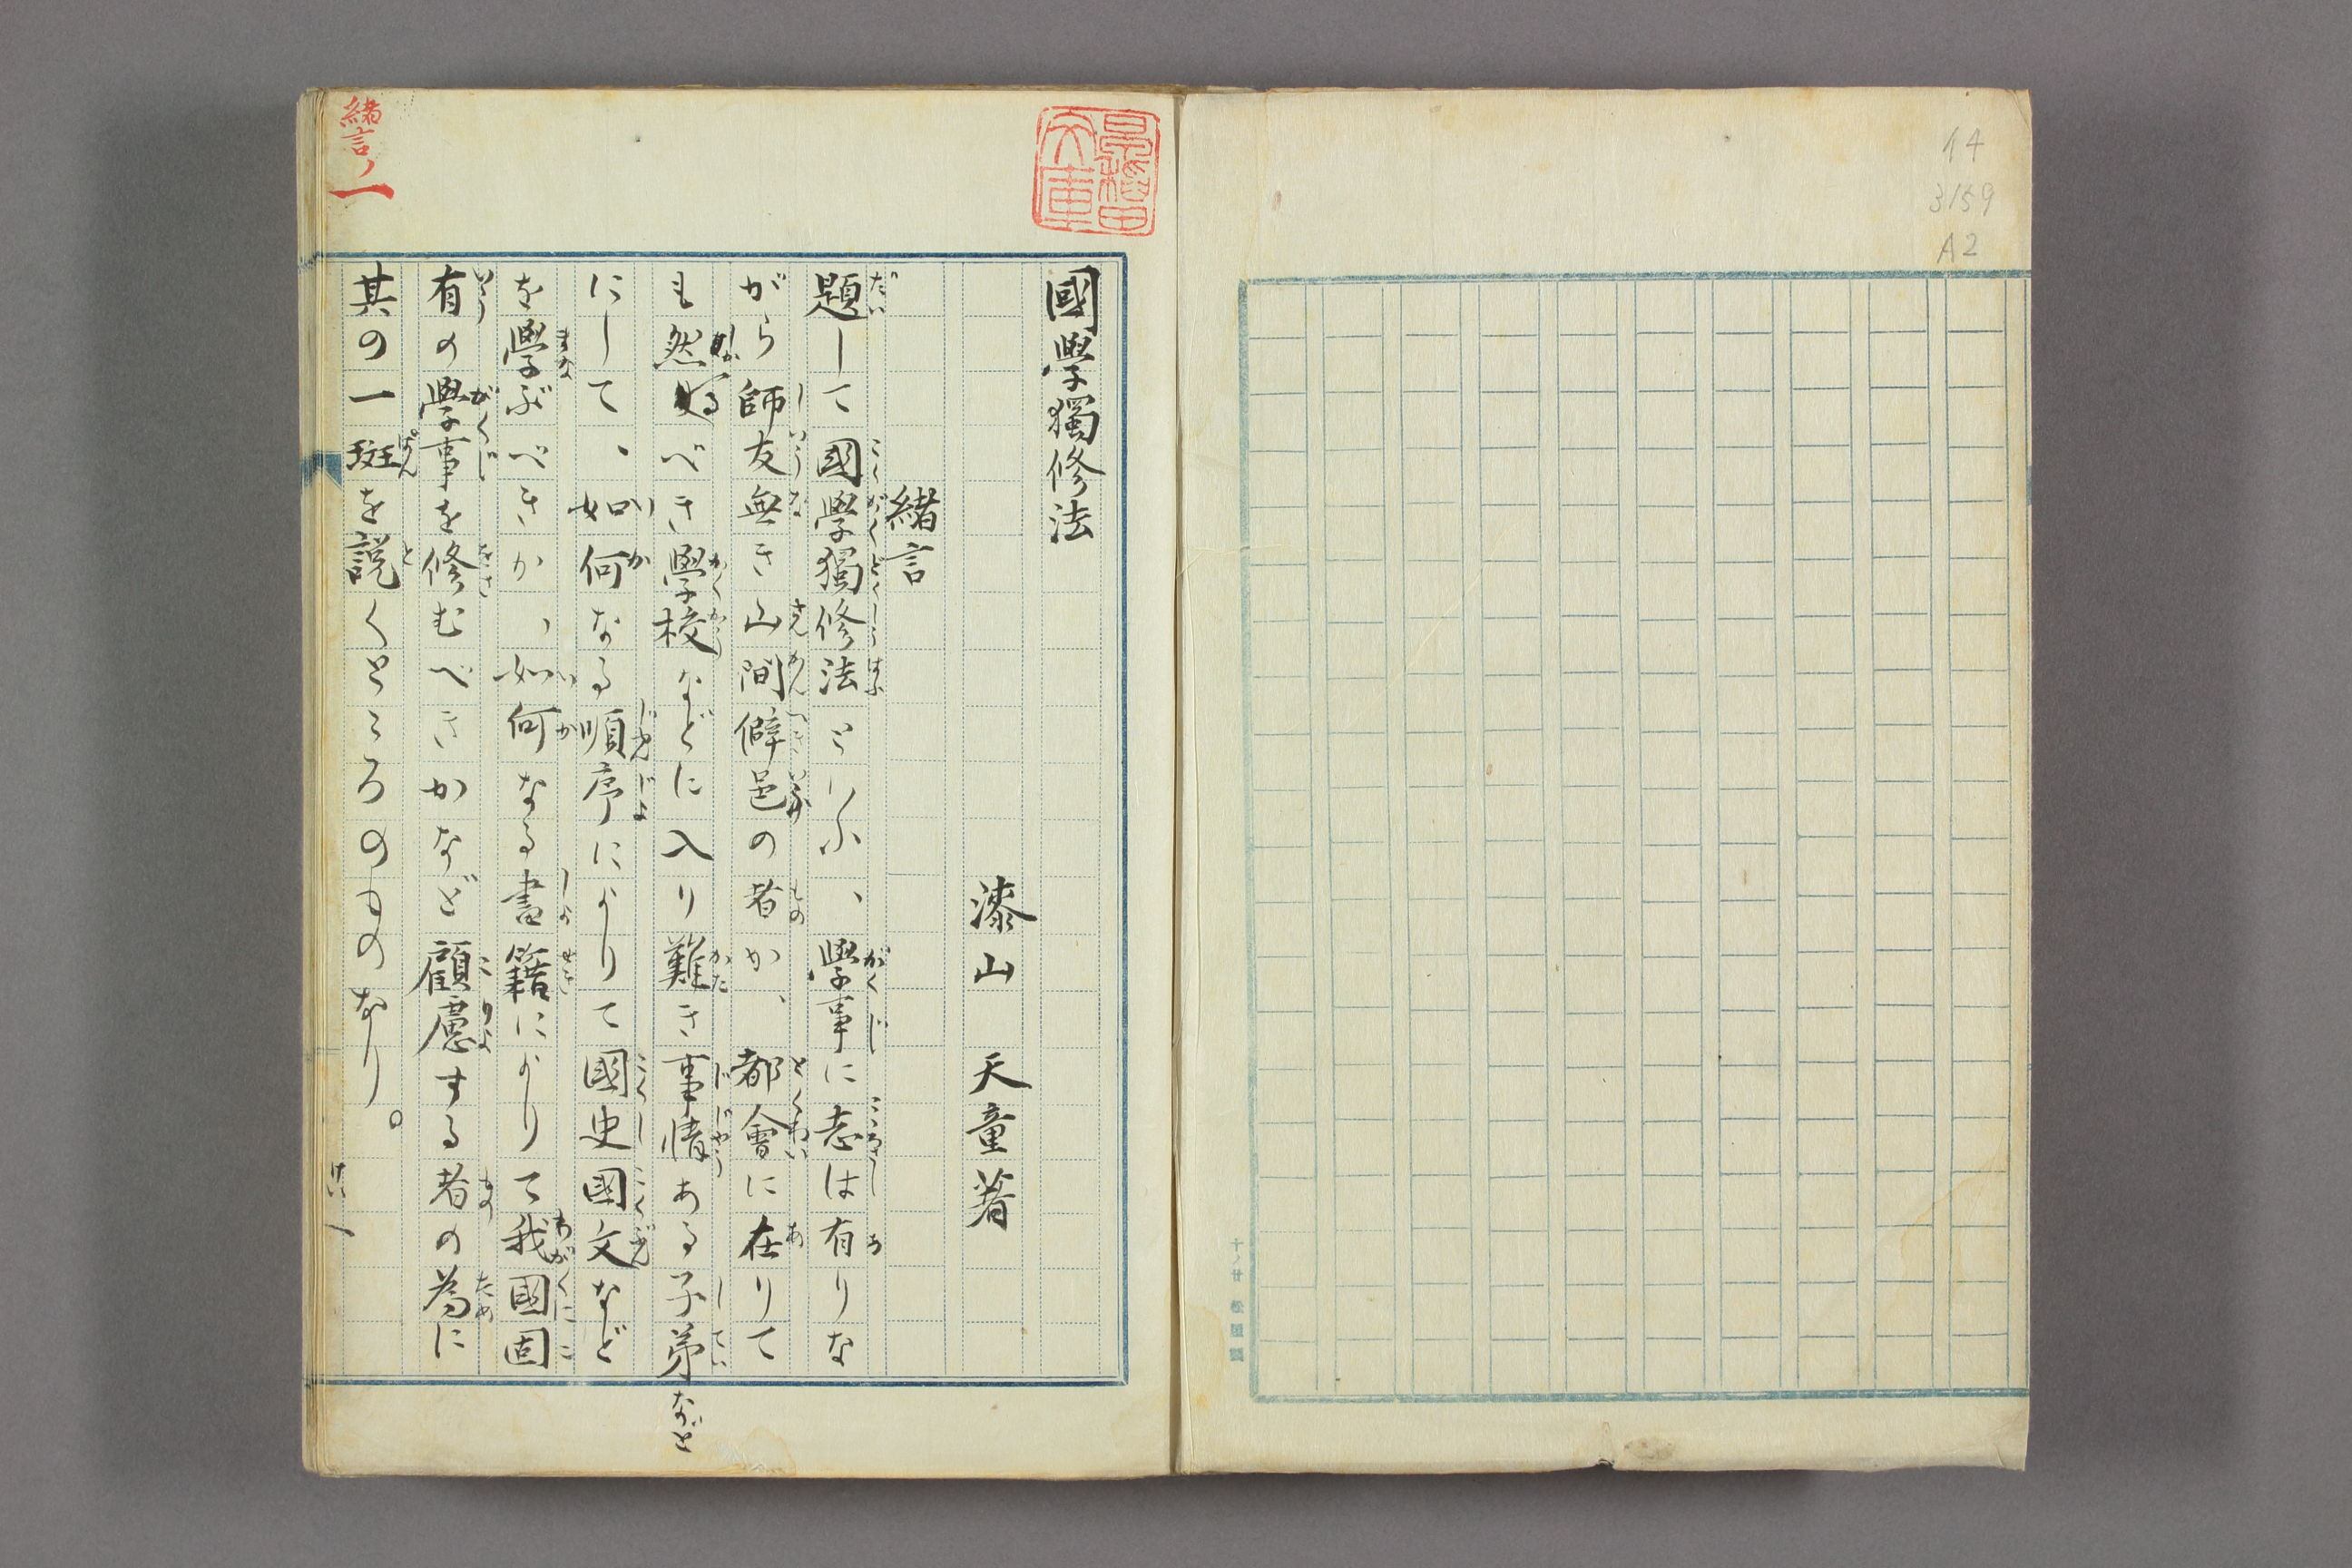 14
3159
A2
國學獨修法
漆山天童著
緒言
題して國學獨修法といふ、學事に志は有りな
がら師友無き山間僻邑の者か、都會に在りて
も然るべき學校などに入り難き事情ある子弟など
にして、如何なる順序によりて國史國文など
を學ぶべきか、如何なる書籍によりて我國固
有の學事を修むべきかなど顧慮する者の為に
其の一斑を説くところのものなり。
緒言ノ一